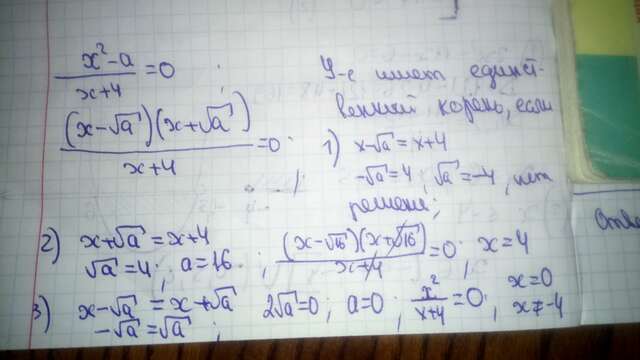 x² - a / x+4 = 0 ;
(x-√a)(x+√a) / x+4 = 0.
У-е имеет единст-
венный корень, если
1) x-√a = x+4
-√a = 4, √a = -4, нет
решения;
2) x+√a = x+4
√a = 4; a = 16. ; (x-√16)(x+√16) / x+4 = 0; x = 4
3) x-√a = x+√a 2√a = 0; a = 0; x² / x+4 = 0; x = 0
-√a = √a ; x ≠ -4
Отве